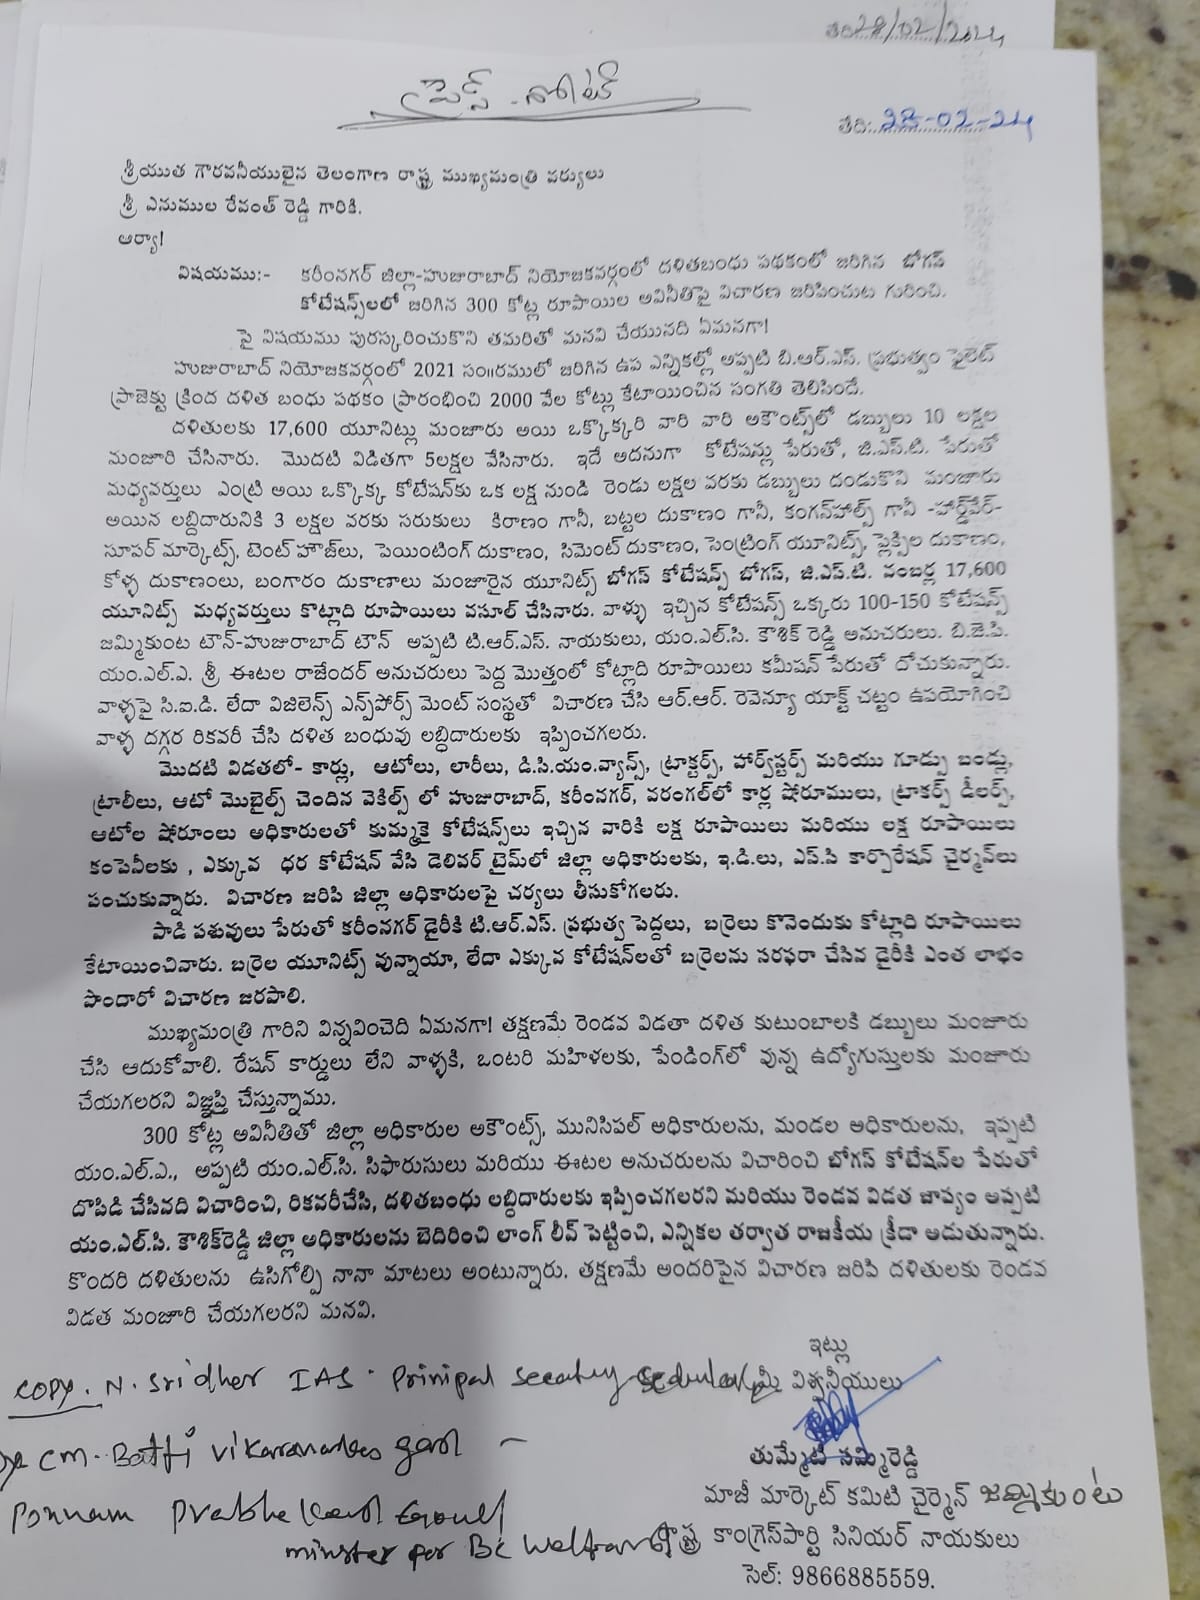 తేది28/02/2024
ప్రెస్ నోట్
తేది: 28-02-24
శ్రీయుత గౌరవనీయులైన తెలంగాణ రాష్ట్ర ముఖ్యమంత్రి వర్యులు
శ్రీ ఎనుముల రేవంత్ రెడ్డి గారికి.
ఆర్యా!
విషయము:- కరీంనగర్ జిల్లా-హుజురాబాద్ నియోజకవర్గంలో దళితబంధు పథకంలో జరిగిన బోగస్
కోటేషన్స్‌లలో జరిగిన 300 కోట్ల రూపాయిల అవినీతిపై విచారణ జరిపించుట గురించి.
పై విషయము పురస్కరించుకొని తమరితో మనవి చేయునది ఏమనగా!
హుజురాబాద్ నియోజకవర్గంలో 2021 సం॥రములో జరిగిన ఉప ఎన్నికల్లో అప్పటి బి.ఆర్.ఎస్. ప్రభుత్వం ఫైలెట్
ప్రాజెక్టు క్రింద దళిత బంధు పథకం ప్రారంభించి 2000 వేల కోట్లు కేటాయించిన సంగతి తెలిసిందే.
దళితులకు 17,600 యూనిట్లు మంజూరు అయి ఒక్కొక్కరి వారి వారి అకౌంట్స్‌లో డబ్బులు 10 లక్షల
మంజూరి చేసినారు. మొదటి విడితగా 5లక్షల వేసినారు. ఇదే అదనుగా కోటేషన్లు పేరుతో, జి.ఎస్.టి. పేరుతో
మధ్యవర్తులు ఎంట్రి అయి ఒక్కొక్క కోటేషన్‌కు ఒక లక్ష నుండి రెండు లక్షల వరకు డబ్బులు దండుకొని మంజూరు
అయిన లబ్దిదారునికి 3 లక్షల వరకు సరుకులు కిరాణం గానీ, బట్టల దుకాణం గానీ, కంగన్‌హాల్స్ గానీ -హార్డ్‌వేర్-
సూపర్ మార్కెట్స్, టెంట్ హౌజ్‌లు, పెయింటింగ్ దుకాణం, సిమెంట్ దుకాణం, సెంట్రింగ్ యూనిట్స్, ఫ్లెక్సిల దుకాణం,
కోళ్ళ దుకాణంలు, బంగారం దుకాణాలు మంజూరైన యూనిట్స్ బోగస్ కోటేషన్స్ బోగస్, జి.ఎస్.టి. నంబర్ల 17,600
యూనిట్స్ మధ్యవర్తులు కొట్లాది రూపాయిలు వసూల్ చేసినారు. వాళ్ళు ఇచ్చిన కోటేషన్స్ ఒక్కరు 100-150 కోటేషన్స్
జమ్మికుంట టౌన్-హుజురాబాద్ టౌన్ అప్పటి టి.ఆర్.ఎస్. నాయకులు, యం.ఎల్.సి. కౌశిక్ రెడ్డి అనుచరులు. బి.జె.పి.
యం.ఎల్.ఎ. శ్రీ ఈటల రాజేందర్ అనుచరులు పెద్ద మొత్తంలో కోట్లాది రూపాయిలు కమీషన్ పేరుతో దోచుకున్నారు.
వాళ్ళపై సి.ఐ.డి. లేదా విజిలెన్స్ ఎన్ఫ్‌పోర్స్ మెంట్ సంస్థతో విచారణ చేసి ఆర్.ఆర్. రెవెన్యూ యాక్ట్ చట్టం ఉపయోగించి
వాళ్ళ దగ్గర రికవరీ చేసి దళిత బంధువు లబ్ధిదారులకు ఇప్పించగలరు.
మొదటి విడతలో- కార్లు, ఆటోలు, లారీలు, డి.సి.యం.వ్యాన్స్, ట్రాక్టర్స్, హార్వ్‌స్టర్స్ మరియు గూడ్సు బండ్లు,
ట్రాలీలు, ఆటో మొబైల్స్ చెందిన వెకిల్స్ లో హుజురాబాద్, కరీంనగర్, వరంగల్‌లో కార్ల షోరూములు, ట్రాకర్స్ డీలర్స్,
ఆటోల షోరూంలు అధికారులతో కుమ్మకై కోటేషన్స్‌లు ఇచ్చిన వారికి లక్ష రూపాయిలు మరియు లక్ష రూపాయిలు
కంపెనీలకు , ఎక్కువ ధర కోటేషన్ వేసి డెలివర్ టైమ్‌లో జిల్లా అధికారులకు, ఇ.డి.లు, ఎస్.సి కార్పొరేషన్ చైర్మన్‌లు
పంచుకున్నారు. విచారణ జరిపి జిల్లా అధికారులపై చర్యలు తీసుకోగలరు.
పాడి పశువులు పేరుతో కరీంనగర్ డైరీకి టి.ఆర్.ఎస్. ప్రభుత్వ పెద్దలు, బర్రెలు కొనెందుకు కోట్లాది రూపాయిలు
కేటాయించినారు. బర్రెల యూనిట్స్ వున్నాయా, లేదా ఎక్కువ కోటేషన్‌లతో బర్రెలను సరఫరా చేసిన డైరీకి ఎంత లాభం
పొందారో విచారణ జరపాలి.
ముఖ్యమంత్రి గారిని విన్నవించెది ఏమనగా! తక్షణమే రెండవ విడతా దళిత కుటుంబాలకి డబ్బులు మంజూరు
చేసి ఆదుకోవాలి. రేషన్ కార్డులు లేని వాళ్ళకి, ఒంటరి మహిళలకు, పేండింగ్‌లో వున్న ఉద్యోగుస్తులకు మంజూరు
చేయగలరని విజ్ఞప్తి చేస్తున్నాము.
300 కోట్ల అవినీతితో జిల్లా అధికారుల అకౌంట్స్, మునిసిపల్ అధికారులను, మండల అధికారులను, ఇప్పటి
యం.ఎల్.ఎ., అప్పటి యం.ఎల్.సి. సిఫారుసులు మరియు ఈటల అనుచరులను విచారించి బోగస్ కోటేషన్‌ల పేరుతో
దొపిడి చేసినది విచారించి, రికవరీచేసి, దళితబంధు లబ్ధిదారులకు ఇప్పించగలరని మరియు రెండవ విడత జాప్యం అప్పటి
యం.ఎల్.సి. కౌశిక్‌రెడ్డి జిల్లా అధికారులను బెదిరించి లాంగ్ లీవ్ పెట్టించి, ఎన్నికల తర్వాత రాజకీయ క్రీడా ఆడుతున్నారు.
కొందరి దళితులను ఉసిగోల్పి నానా మాటలు అంటున్నారు. తక్షణమే అందరిపైన విచారణ జరిపి దళితులకు రెండవ
విడత మంజూరి చేయగలరని మనవి.
ఇట్లు
COPY. N. Sridher IAS. Prinipal
మీ విశ్వనీయులు
CM. Batti Vikaramarkes garu -
తుమ్మేటి సమ్మిరెడ్డి
మాజీ మార్కెట్ కమిటి చైర్మెన్ జమ్మికుంట
Ponnam Prabhakar Goud
minster for BC Welfare
రాష్ట్ర కాంగ్రెస్‌పార్టి సినియర్ నాయకులు
సెల్: 9866885559.